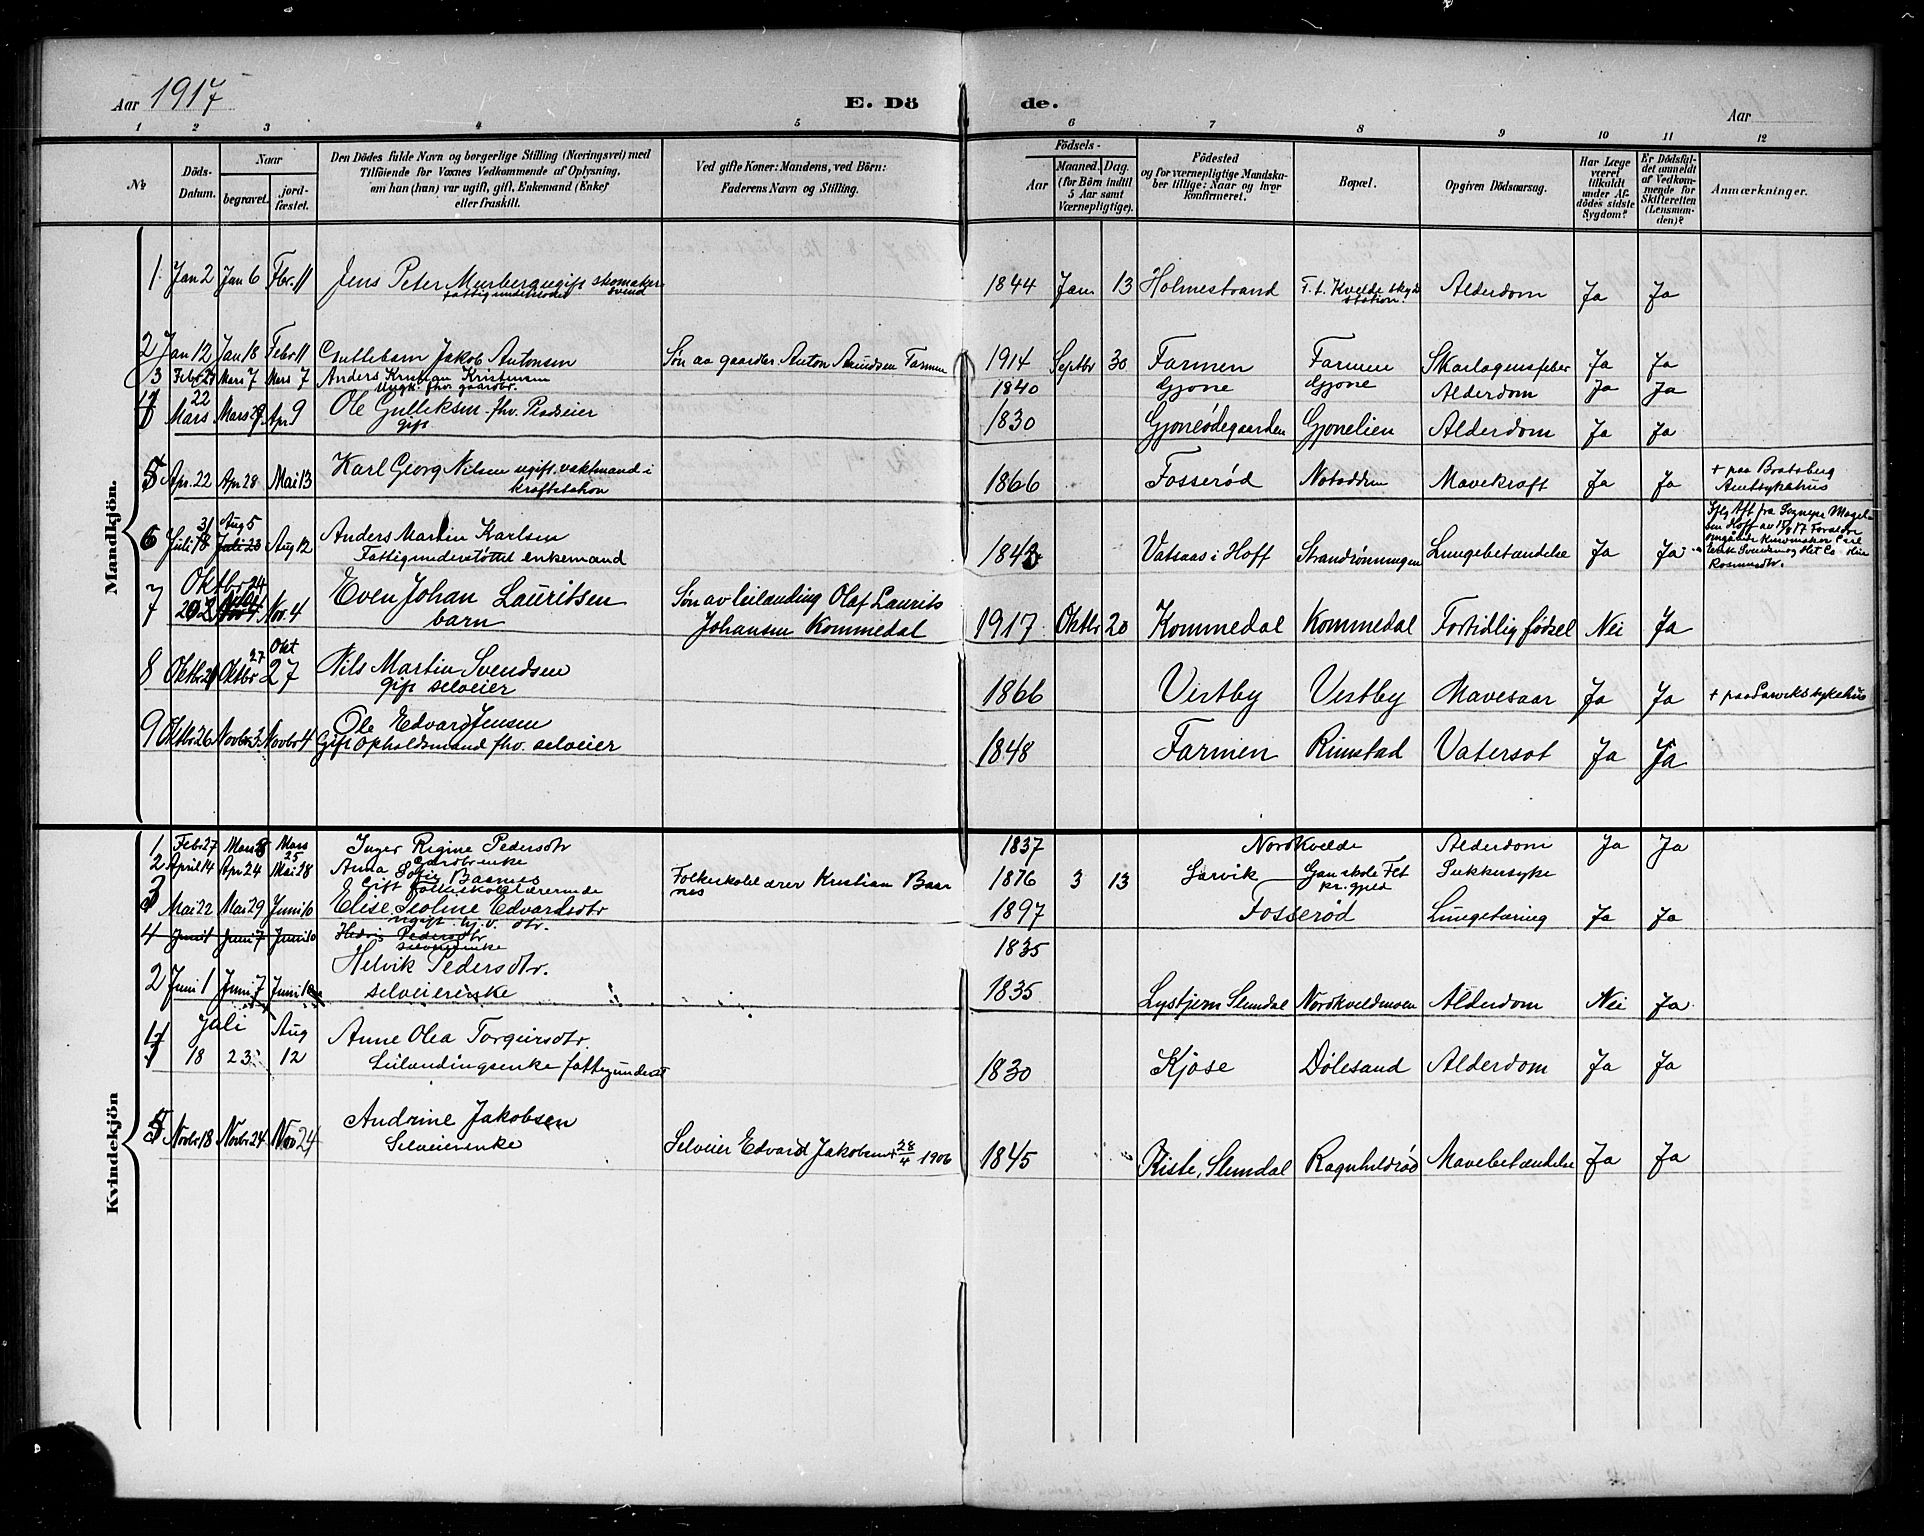 Aar 1917 E. Dö de. Aar
1 2 3 4 5 6 7 8 9 10 11 12
No
Döds-Datum.
Naar begravet. jordfæstet.
Den Dödes fulde Navn og borgerlige Stilling (Næringsvei) med Tilföiende for Voxnes Vedkommende af Oplysning, om han (hun) var ugift, gift, Enkemand (Enke) eller fraskilt.
Ved gifte Koner: Mandens, ved Börn: Faderens Navn og Stilling.
Födsels- Aar Maaned. Dag. (for Börn indtil 5 Aar samt Værnepligtige).
Födested og for værnepligtige Mandskaber tillige: Naar og hvor konfirmeret.
Bopæl.
Opgiven Dödsaarsag.
Har Læge været tilkaldt under Afdödes sidste Sygdom?
Er Dödsfaldet anmeldt af Vedkommende for Skifteretten (Lensmanden)?
Anmærkninger.
Mandkjön.
1 Jan 2 Jan 6 Fbr. 11 Jens Peter Murberg ugift skomakersvend fattigunderstøttet 1844 Jan 13 Holmestrand F. t. Kvelde skydsstation. Alderdom Ja Ja
2 Jan 12 Jan 18 Febr 11 Guttebarn Jakob Antonsen Søn av gaardbr. Anton Amundsen Farmen 1914 Septbr 30 Farmen Farmen Skarlagensfeber Ja Ja
3 Febr 27 Mars 7 Mars 7 Anders Kristian Kristensen Ungk. fhv. gaardbr. 1840 Gjone Gjone Alderdom Ja Ja
4 22 Mars Mars 29 Apr 9 Ole Gulliksen fhv. Pladseier gift 1830 Gjoneødegaarden Gjonelien Alderdom Ja Ja
5 Apr. 22 Apr 28 Mai 13 Karl Georg Nilsen ugift, vaktmand i kraftstation 1866 Fosserød Notodden Mavekræft Ja Ja + paa Bratsberg Amtssykehus
6 Juli 31 Aug 5 Juli 23 Aug 12 Anders Martin Karlsen Fattigunderstøttet enkemand 1843 Vataas i Hoff Strandrønningen Lungebetændelse Ja Ja
7 Oktbr 24 Nov 4 Even Johan Lauritsen barn Søn av leilænding Olaf Laurits Johansen Kommedal 1917 Oktbr 20 Kommedal Kommedal Fortidlig fødsel Nei Ja
8 Oktbr 21 Oktbr 27 Okt 27 Nils Martin Svendsen gift selveier 1866 Vestby Vestby Mavesaar Ja Ja + paa Larviks sykehus
9 Oktbr 26 Novbr 3 Novbr 4 Ole Edvard Jensen Gift opholdsmand fhv. selveier 1848 Farmen Rimstad Vatersot Ja Ja
Kvindekjön
1 Febr 27 Mars 8 Mars 25 Inger Regine Pedersdtr gårdbr.enke 1837 Nordkvelde Alderdom Ja Ja
2 April 14 Apr 24 Mai 28 Anna Sofie Baanes Gift folkeskolelærerinde Folkeskolelærer Kristian Baanes 1876 3 13 Larvik Sukkersyke
3 Mai 22 Mai 29 Juni 10 Elise Isoline Edvardsdtr ugift. hj.v. dtr. 1897 Fosserød Lungetæring Ja Ja
4 Juni 1 Juni 7 Juni 10 Pedersdtr selveierenke 1835
2 Juni 1 Juni 7 Juni 10 Helvik Pedersdtr. selveierenke 1835 Lystjern Slemdal Nordkveldmoen Alderdom Nei Ja
4 Juli 18 23 Aug 12 Anne Olea Torgersdtr. Leilændingsenke fattigunderst 1830 Kjose Dølesand Alderdom Ja Ja
5 Novbr 18 Novbr 24 Nov 24 Andrine Jakobsen Selveierenke Selveier Edvard Jakobsen + 28/4 1906 1845 Riste, Slemdal Ragnhildrød Mavebetændelse Ja Ja